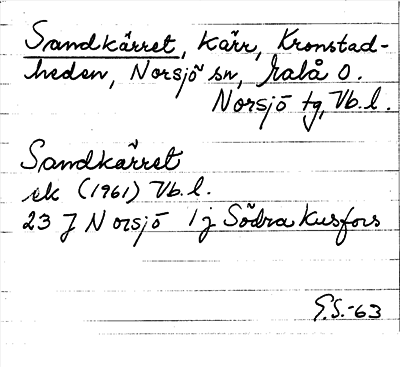 Sandkärret, Kärr, Kronstad-
heden, Norsjö sn, Malå O.
Norsjö tg, Vb. l.
Sandkärret
ek (1961) Vb. l.
23 J Norsjö 1 j Södra Kusfors
G.S.-63